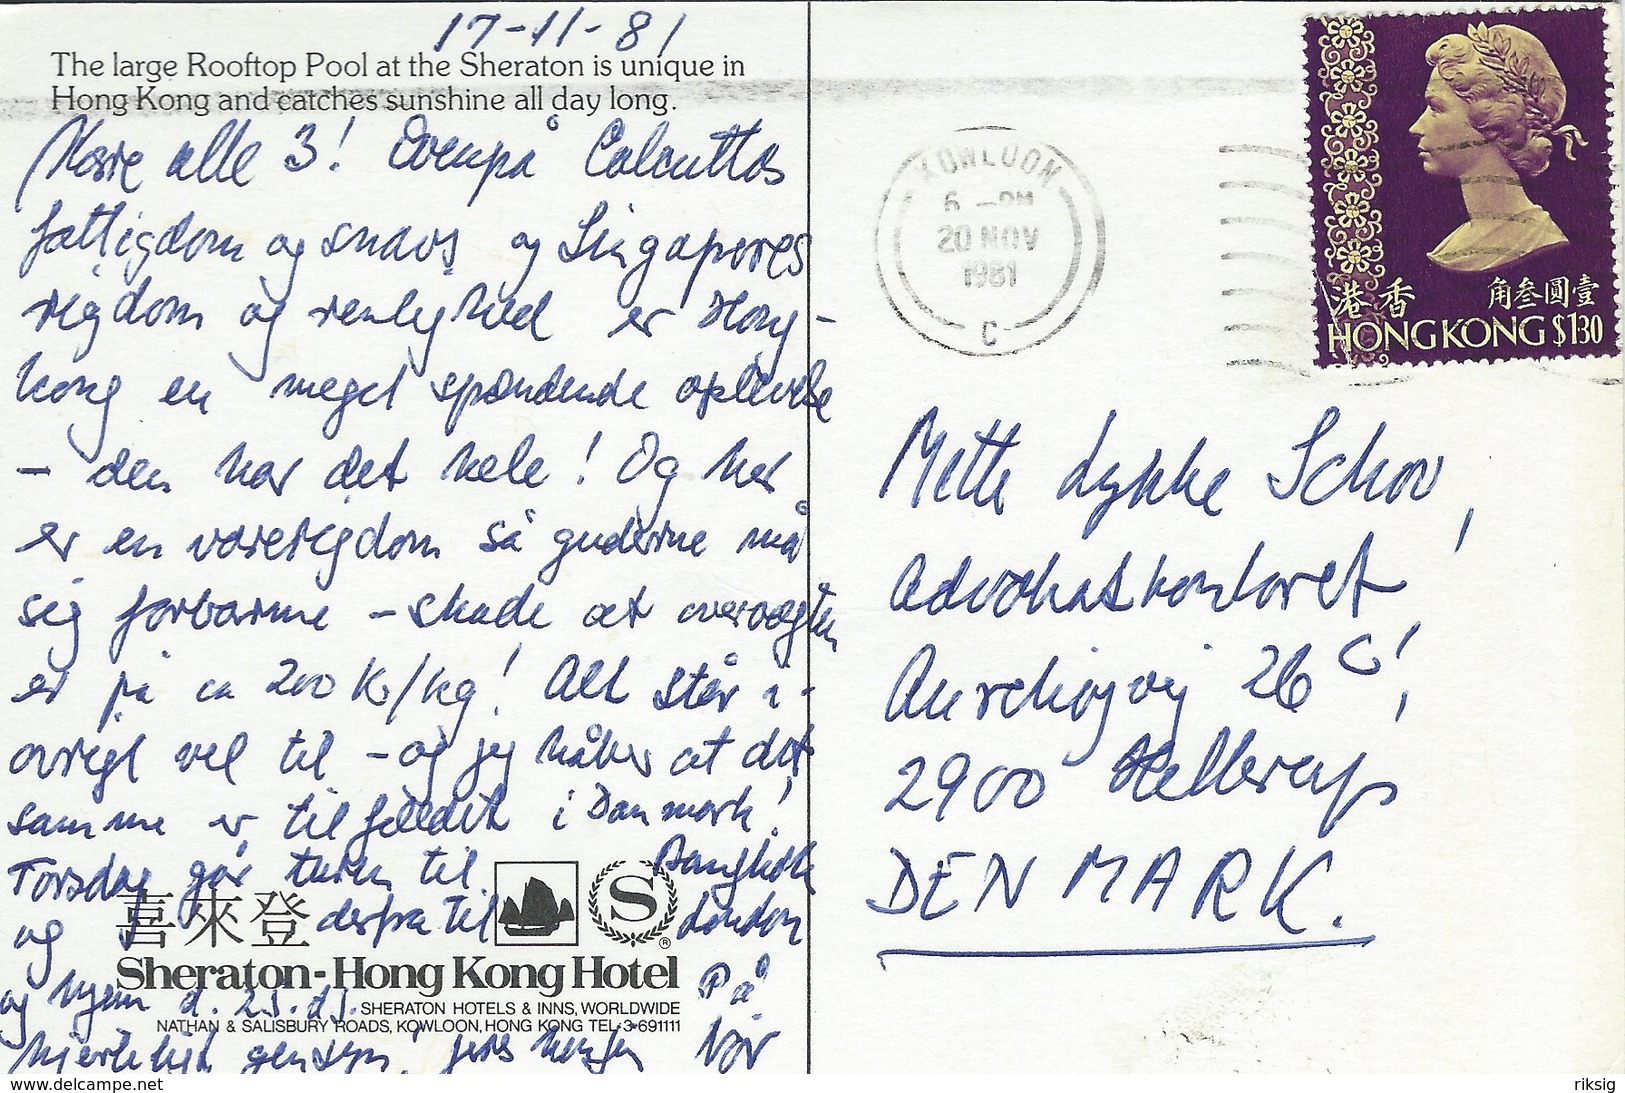 17-11-81
The large Rooftop Pool at the Sheraton is unique in
Hong Kong and catches sunshine all day long.
Kære alle 3! Ovenpå Calcuttas
fattigdom og snavs og Singapores
rigdom og renlighed er Hong-
kong en meget spændende oplevelse
- den har det hele! Og her
er en varerigdom så guderne må
sig forbarme - skade at overvægten
er på ca 200 Kr/kg! Alt står i-
øvrigt vel til - og jeg håber at det
samme er tilfældet i Danmark!
Torsdag går turen til Bangkok
og derfra til London
og hjem d. 25. ds. På
hjerteligt gensyn!
喜來登
S
®
Sheraton-Hong Kong Hotel
SHERATON HOTELS & INNS, WORLDWIDE
NATHAN & SALISBURY ROADS, KOWLOON, HONG KONG TEL: 3-691111
KOWLOON
6 -PM
20 NOV
1981
C
港香 角叁圓壹
HONG KONG $130
Mette Lykke Schou,
Advokatkontoret,
Aurehøjvej 26 C,
2900 Hellerup
DENMARK.
www.delcampe.net
riksig